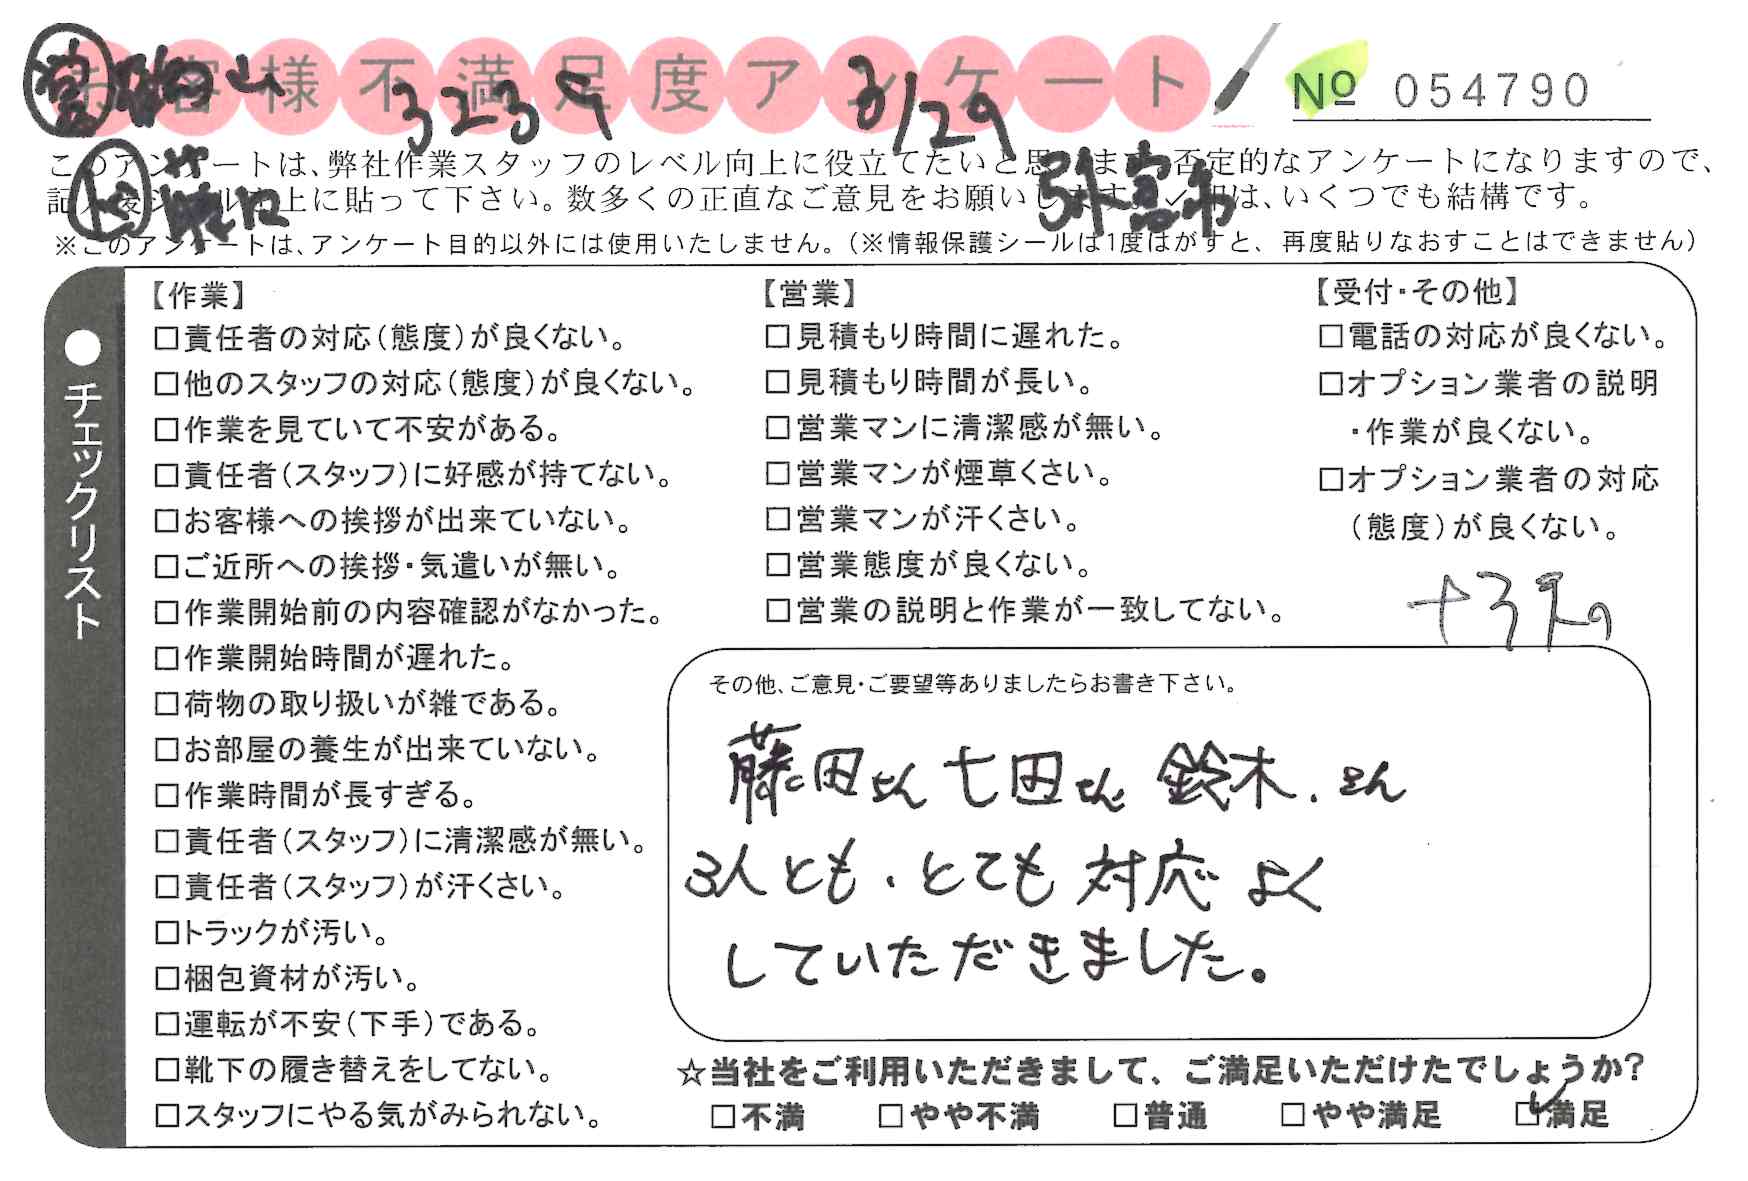 お客様不満足度アンケート
№ 054790
3239
3/29
このアンケートは、弊社作業スタッフのレベル向上に役立てたいと思います。否定的なアンケートになりますので、
記入後シールを上に貼って下さい。数多くの正直なご意見をお願いします。✓印は、いくつでも結構です。
※このアンケートは、アンケート目的以外には使用いたしません。（※情報保護シールは1度はがすと、再度貼りなおすことはできません）
●チェックリスト
【作業】
□責任者の対応（態度）が良くない。
□他のスタッフの対応（態度）が良くない。
□作業を見ていて不安がある。
□責任者（スタッフ）に好感が持てない。
□お客様への挨拶が出来ていない。
□ご近所への挨拶・気遣いが無い。
□作業開始前の内容確認がなかった。
□作業開始時間が遅れた。
□荷物の取り扱いが雑である。
□お部屋の養生が出来ていない。
□作業時間が長すぎる。
□責任者（スタッフ）に清潔感が無い。
□責任者（スタッフ）が汗くさい。
□トラックが汚い。
□梱包資材が汚い。
□運転が不安（下手）である。
□靴下の履き替えをしてない。
□スタッフにやる気がみられない。
【営業】
□見積もり時間に遅れた。
□見積もり時間が長い。
□営業マンに清潔感が無い。
□営業マンが煙草くさい。
□営業マンが汗くさい。
□営業態度が良くない。
□営業の説明と作業が一致してない。
【受付・その他】
□電話の対応が良くない。
□オプション業者の説明
・作業が良くない。
□オプション業者の対応
（態度）が良くない。
その他、ご意見・ご要望等ありましたらお書き下さい。
藤田さん 七田さん 鈴木さん
3人とも、とても対応よく
していただきました。
☆当社をご利用いただきまして、ご満足いただけたでしょうか?
□不満 □やや不満 □普通 □やや満足 ☑満足